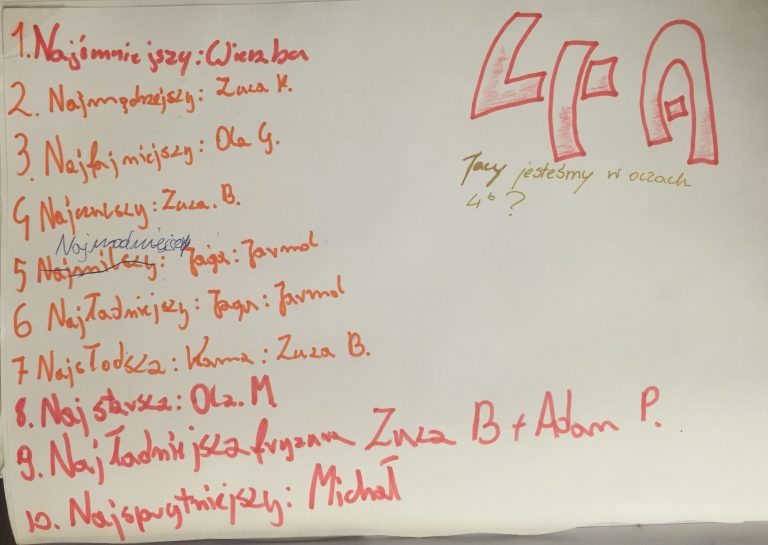 4A
Tacy jesteśmy w oczach
4b?
1. Najśmniejszy: Wierzba
2. Najmądrzejszy: Zuza K.
3. Najfajniejszy: Ola G.
4 Zuza. B.
Najmodniejszy
5 Najmilszy: Jaga: Jarmol
6 Najładniejszy: Jaga: Jarmol
7 Najsłodsza: Kama: Zuza B.
8. Najstarsza: Ola. M.
9. Najładniejsza fryzura Zuza B + Adam P.
10. Najsprytniejszy: Michał